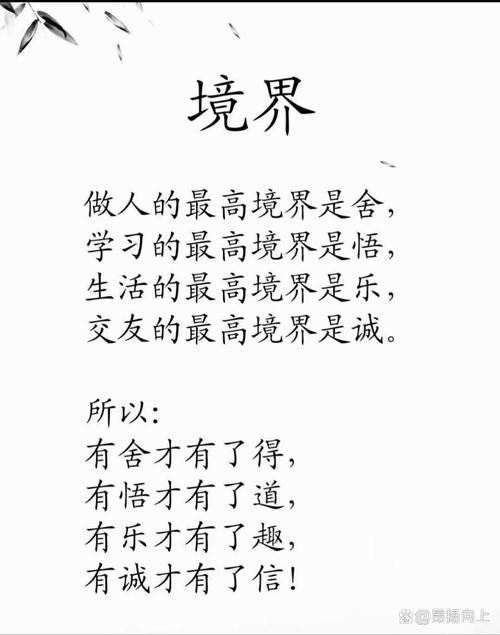 境界
做人的最高境界是舍，
学习的最高境界是悟，
生活的最高境界是乐，
交友的最高境界是诚。
所以：
有舍才有了得，
有悟才有了道，
有乐才有了趣，
有诚才有了信！
昂扬向上